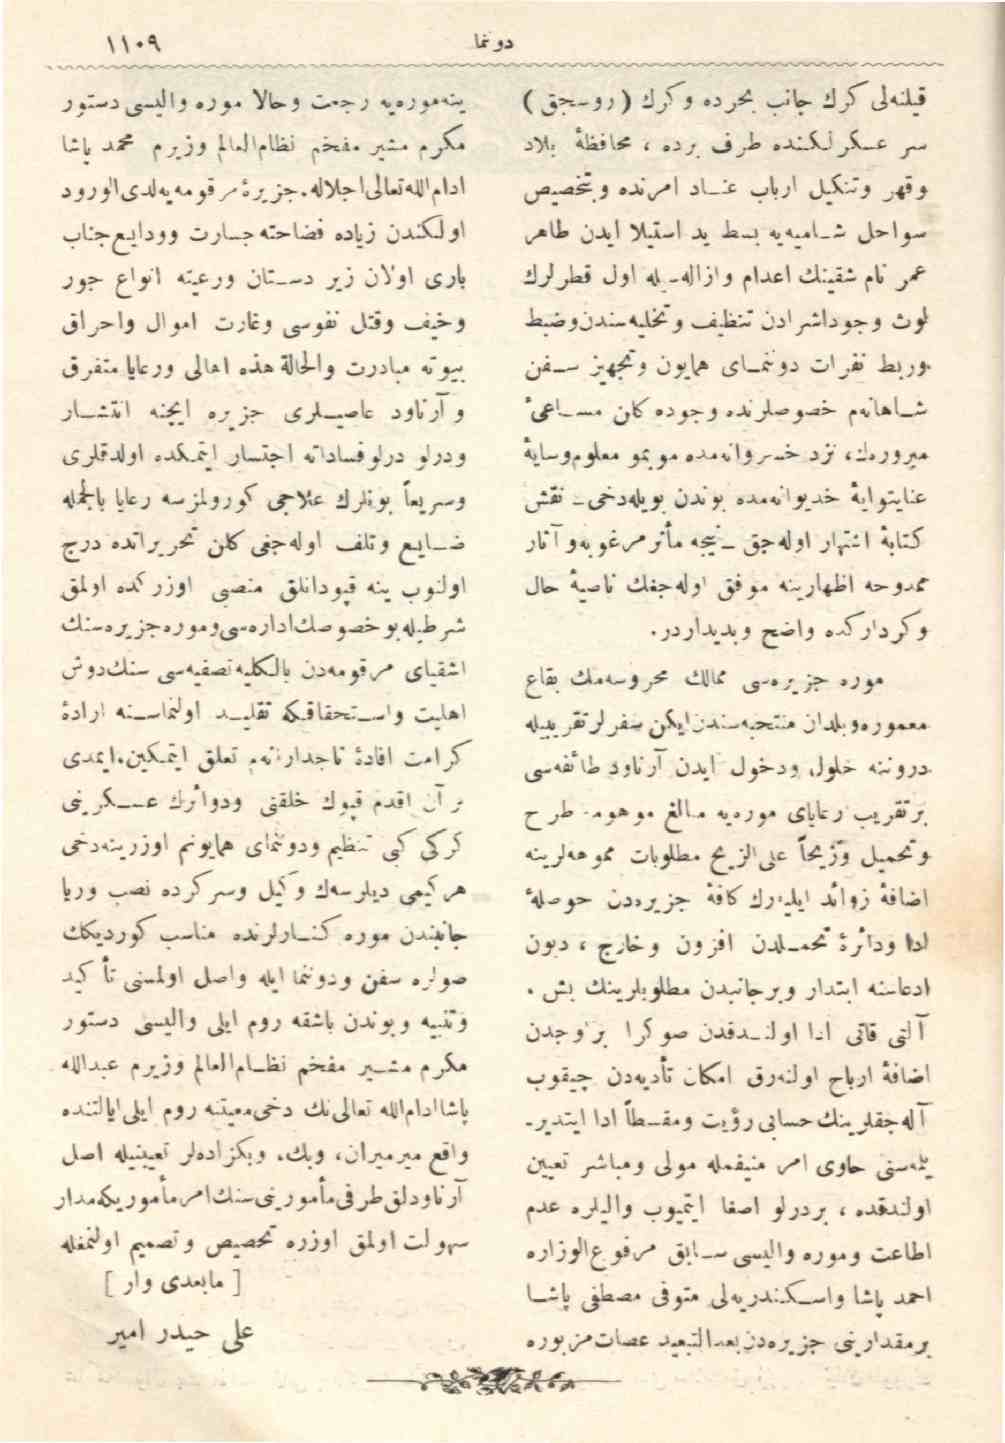 دوننما
١١٠٩
قیلنه‌لی كرك جانب بحرده وكرك ( روسجق )
سر عسكرلكنده طرف برده ، محافظهٔ بلاد
وقهر وتنكیل ارباب عناد امرنده وبتخصیص
سواحل شامیه‌یه بسط ید استیلا ایدن طاهر
عمر نام شقینك اعدام وازاله‌سیله اول قطرلرك
لوث وجود اشرادن تنظیف وتخلیه‌سندن وضبط
وربط نفرات دوننمای همایون وتجهیز سفن
شاهانه‌م خصوصلرنده وجوده كلن مساعیٔ
مبروره‌ك، نزد خسروانه‌مده موبمو معلوم وسایهٔ
عنایتوایهٔ خدیوانه‌مده بوندن بویله‌دخی ـ نقش
كتابهٔ اشتهار اوله‌جق ـ نیجه مأثر مرغوبه و آثار
ممدوحه اظهارینه موفق اوله‌جغك ناصیهٔ حال
وكرداركده واضح وبدیداردر.
موره جزیره‌سی ممالك محروسه‌مك بقاع
معموره وبلدان منتخبه‌سندن ایكن سفرلر تقریبیله
دروننه حلول ودخول ایدن آرناود طائفه‌سی
بر تقریب رعایای موره‌یه مبالغ موهومه طرح
وتحمیل وتزیحاً علی الزیح مطلوبات مموهه‌لرینه
اضافهٔ زوائد ایلیه‌رك كافهٔ جزیره‌دن حوصلهٔ
ادا ودائرهٔ تحملدن افزون وخارج ، دیون
ادعاسنه ابتدار وبرجانبدن مطلوبلرینك بش ،
آلتی قاتی ادا اولندقدن صوكرا بر اوجدن
اضافهٔ ارباح اولنه‌رق امكان تأدیه‌دن چیقوب
آله‌جقلرینك حسابی رؤیت ومقسطاً ادا ایتدیر-
یلمه‌سنی حاوی امر منیفمله مولی ومباشر تعیین
اولندقده ، بردرلو اصغا ایتمیوب والیلره عدم
اطاعت وموره والیسی سابق مرفوع الوزاره
احمد پاشا واسكندریه‌لی متوفی مصطفی پاشا
برمقدارینی جزیره‌دن بعدالتبعید عصات مزبوره
ینه موره‌یه رجعت وحالا موره والیسی دستور
مكرم مشیر مفخم نظام العالم وزیرم محمد پاشا
ادام الله تعالی اجلاله. جزیرهٔ مرقومه‌یه لدی الورود
اولكندن زیاده فضاحته جسارت وودایع جناب
باری اولان زیر دستان ورعیته انواع جور
وخیف وقتل نفوسی وغارت اموال واحراق
بیوته مبادرت والحالة هذه اهالی ورعایا متفرق
و آرناود عاصیلری جزیره ایچنه انتشار
ودرلو درلو فساداته اجتسار ایتمكده اولدقلری
وسریعاً بونلرك علاجی كورولمزسه رعایا بالجمله
ضایع وتلف اوله‌جغی كلن تحریراتده درج
اولنوب ینه قپودانلق منصبی اوزركده اولمق
شرطیله بو خصوصك اداره‌سی وموره جزیره‌سنك
اشقیای مرقومه‌دن بالكلیه تصفیه‌سی سنك دوش
اهلیت واستحقاقكه تقلید اولنماسنه ارادهٔ
كرامت افادهٔ تاجدارانه‌م تعلق ایتمكین. ایمدی
بر آن اقدم قپوك خلقنی ودوائرك عسكرینی
كركی كبی تنظیم ودوننمای همایونم اوزرینه‌دخی
هر كیمی دیلرسه‌ك وكیل وسركرده نصب ودریا
جانبندن موره كنارلرنده مناسب كوردیكك
صولره سفن ودوننما ایله واصل اولمسنی تأكید
وتنبیه وبوندن باشقه روم ایلی والیسی دستور
مكرم مشیر مفخم نظام العالم وزیرم عبدالله
پاشا ادام الله تعالی‌نك دخی معیتنه روم ایلی ایالتنده
واقع میرمیران، وبك، وبكزاده‌لر تعیینیله اصل
آرناودلق طرفی مأمورینی‌سنك امر مأموریكه مدار
سهولت اولمق اوزره تخصیص وتصمیم اولنمغله
[ مابعدی وار ]
علی حیدر امیر